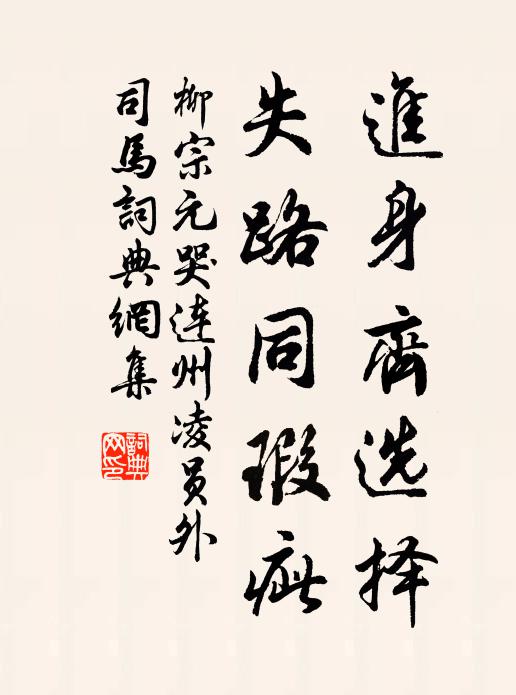 進身齊选择
失路同瑕疵
柳宗元哭连州凌员外
司馬詞典網集
詞典網印